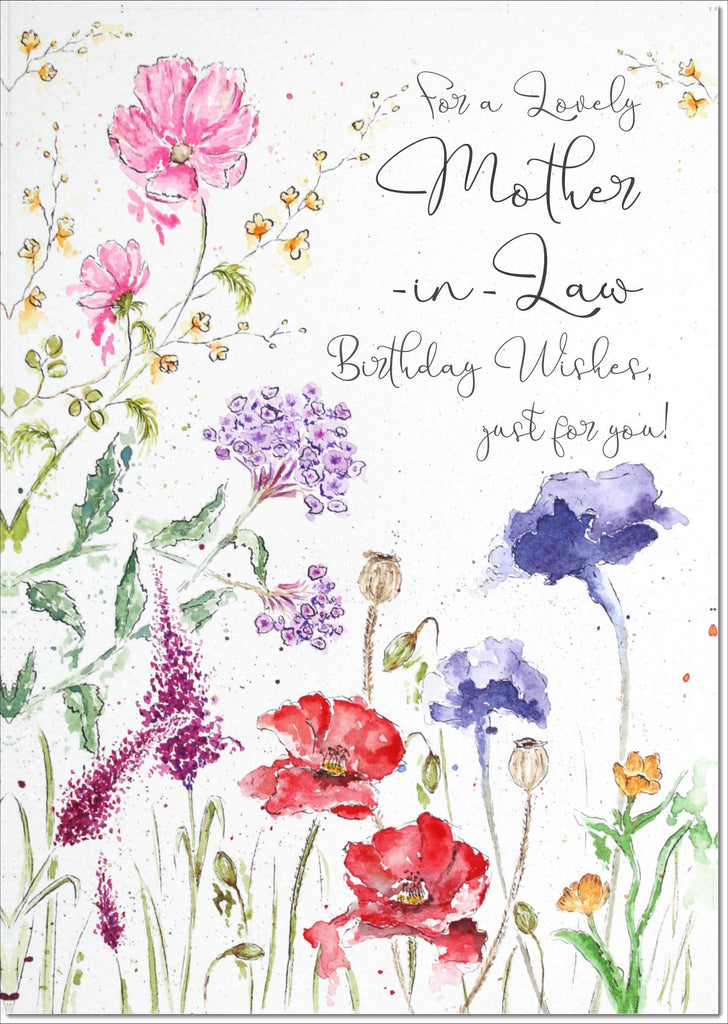 For a Lovely
Mother
-in-Law
Birthday Wishes,
just for you!